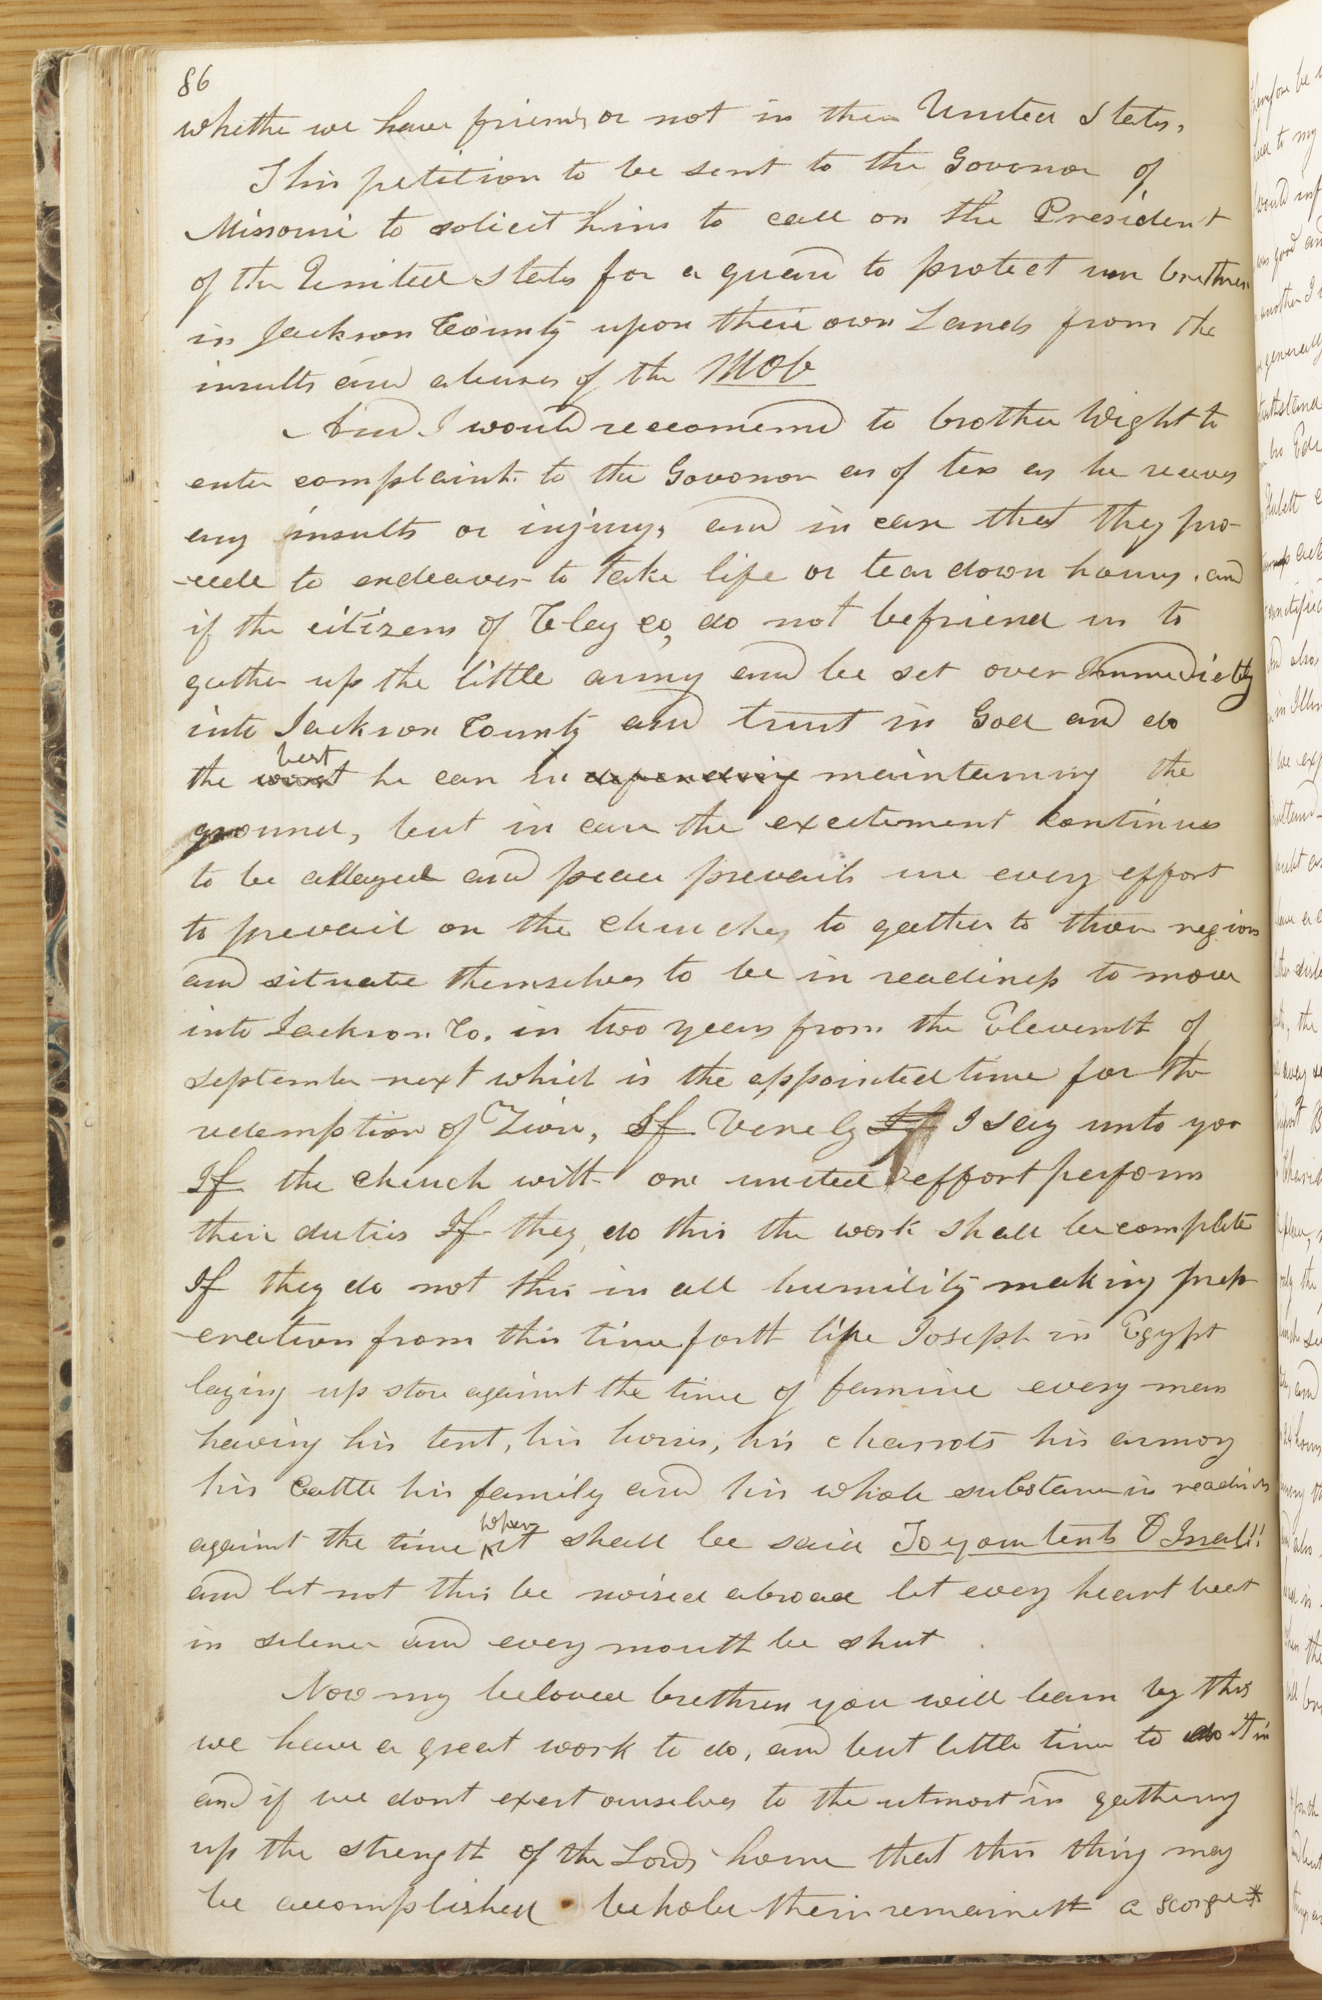 86
whether we have friends or not in these United States.
This petition to be sent to the Govonor of
Missouri to solicit him to call on the President
of the United States for a guard to protect our brethren
in Jackson County upon their own Lands from the
insults and abuses of the MOb
And I would reccomend to brother Wight to
enter complaint to the Govonor as of ten as he receives
any insults or injury, and in case that they pro-
-cede to endeaver to take life or tear down houses. and
if the citizens of Clay co, do not befriend us to
gather up the little army and be set over Immediately
into Jackson County and trust in God and do
best
the worst he can in defending maintaining the
ground, but in case the excitement continues
to be allayed and peace prevails use every effort
to prevail on the churches to gather to those regions
and situate themselves to be in readiness to move
into Jackson Co. in two years from the Eleventh of
September next which is the appointed time for the
redemption of Zion, If Verely If I say unto you
If the church with one united effort perform
their duties If they do this the work shall be complete
If they do not this in all humility making prep-
-eration from this time forth like Joseph in Egypt
laying up store against the time of famine every man
having his tent, his horses, his chariots his armory
his cattle his family and his whole substance in readiness
when
against the time it shall be said To your tents O Isral!!
and let not this be noised abroad let every heart beat
in silence and every mouth be shut
Now my beloved brethren you will learn by this
we have a great work to do, and but little time to do it in
and if we dont exert ourselves to the utmost in gathering
up the strength of the Lords house that this thing may
be accomplished behold their remaineth a scorge*